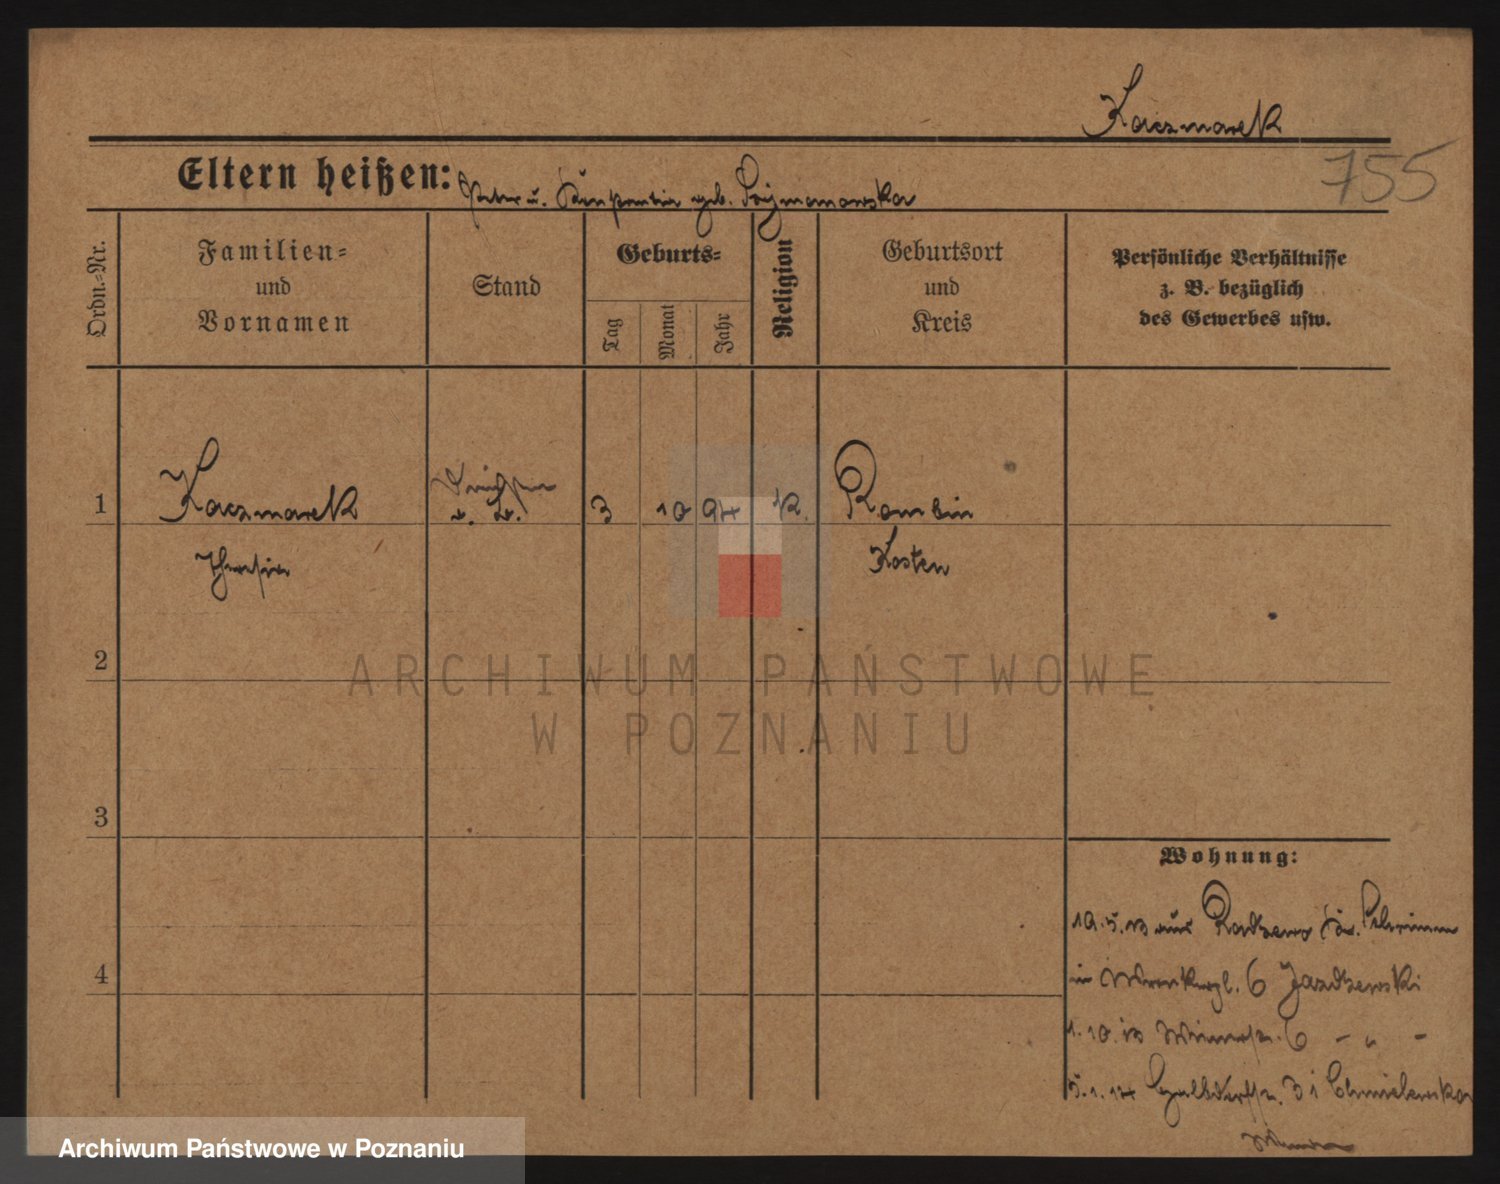 Kaczmarek
755
Eltern heißen: Peter u. geb. Szymanowska
Ordn.-Nr.
Familien-
und
Vornamen
Stand
Geburts-
Tag
Monat
Jahr
Religion
Geburtsort
und
Kreis
Persönliche Verhältnisse
z. B. bezüglich
des Gewerbes usw.
1 Kaczmarek 3 10 94 K. Rombin
Thresia Kosten
2
3
4
Wohnung:
19.5.13 aus Radzewo Kr. Schrimm
in 6 Jazdzewski
1.10.13 6 - " -
5.1.14 3 i Chmielewska
ARCHIWUM PAŃSTWOWE
W POZNANIU
Archiwum Państwowe w Poznaniu